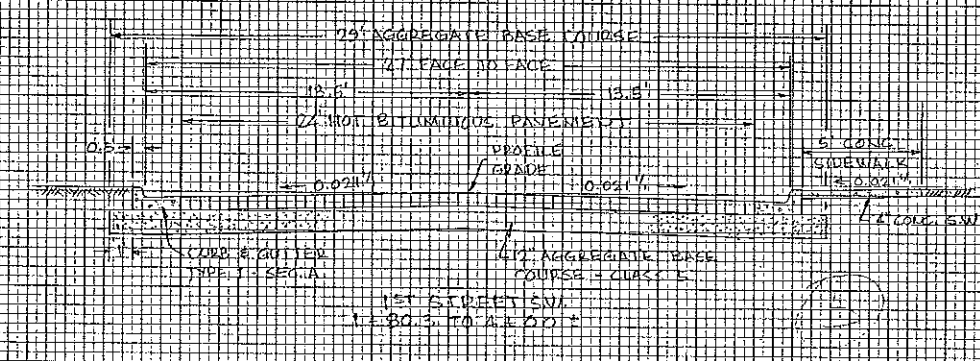 29' AGGREGATE BASE COURSE
27' FACE TO FACE
13.5' 13.5'
24' HOT BITUMINOUS PAVEMENT
0.5
PROFILE
GRADE
5' CONC.
SIDEWALK
0.021'/' 0.021'/' 0.021'/'
4" CONC. S.W.
1'
CURB & GUTTER
TYPE 1 - SEC. A
12" AGGREGATE BASE
COURSE - CLASS 5
1ST STREET S.W.
1+80.3 TO 4+00 ±